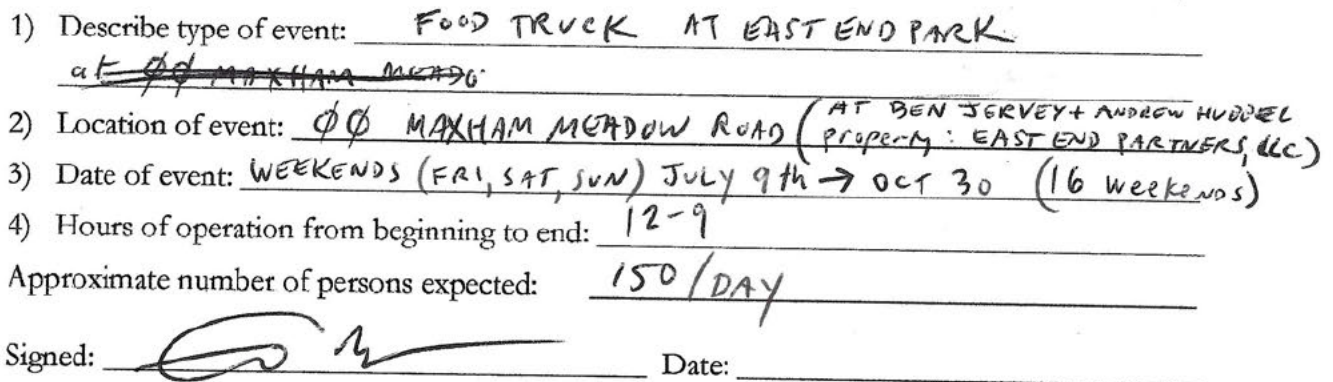 1) Describe type of event: FOOD TRUCK AT EAST END PARK
at ØØ MAXHAM MEADO
2) Location of event: ØØ MAXHAM MEADOW ROAD (AT BEN JERVEY + ANDREW HUDDEL
property: EAST END PARTNERS, LLC)
3) Date of event: WEEKENDS (FRI, SAT, SUN) JULY 9th → OCT 30 (16 weekends)
4) Hours of operation from beginning to end: 12-9
Approximate number of persons expected: 150/DAY
Signed: Date: